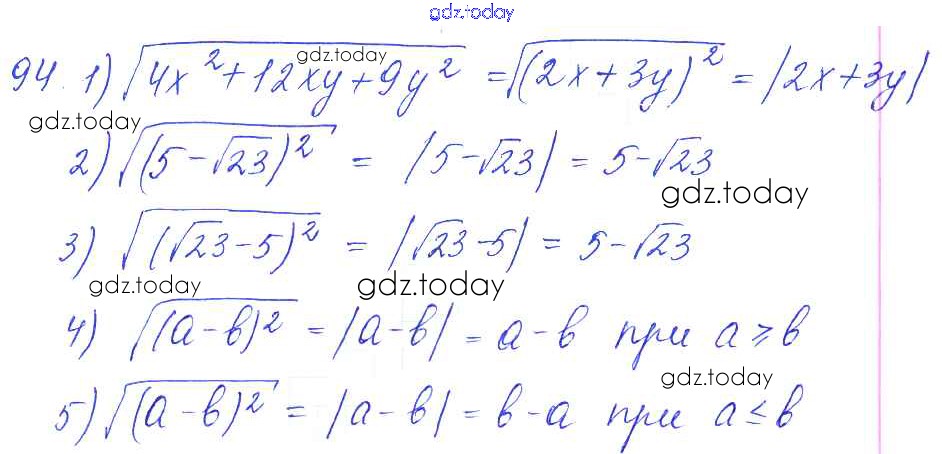 gdz.today
gdz.today
94. 1) √(4x² + 12xy + 9y²) = √((2x + 3y)²) = |2x + 3y|
gdz.today
2) √((5 - √23)²) = |5 - √23| = 5 - √23
gdz.today
3) √((√23 - 5)²) = |√23 - 5| = 5 - √23
gdz.today gdz.today
4) √((a - b)²) = |a - b| = a - b при a ⩾ b
gdz.today
5) √((a - b)²) = |a - b| = b - a при a ≤ b